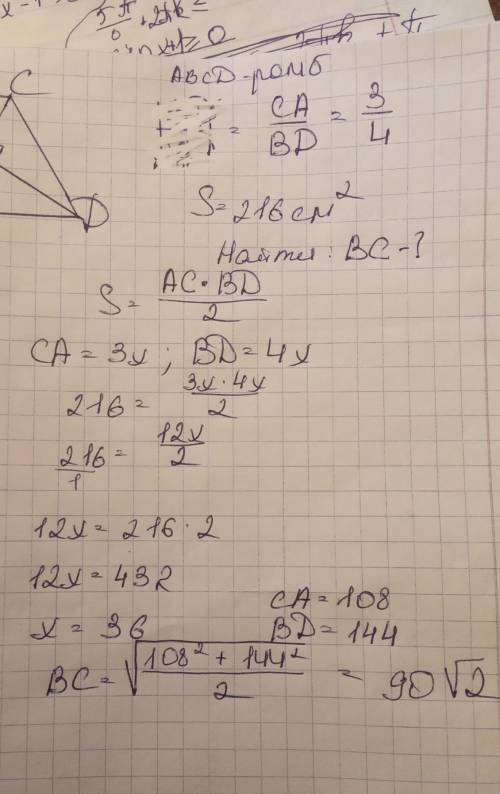 ABCD-ромб
C
= CA/BD = 3/4
S=216см²
D
Найти: BC-?
S= AC·BD/2
CA=3x; BD=4x
216= 3x·4x/2
216/1= 12x/2
12x=216·2
12x=432
CA=108
x=36 BD=144
BC=√(108²+144²/2) = 90√2